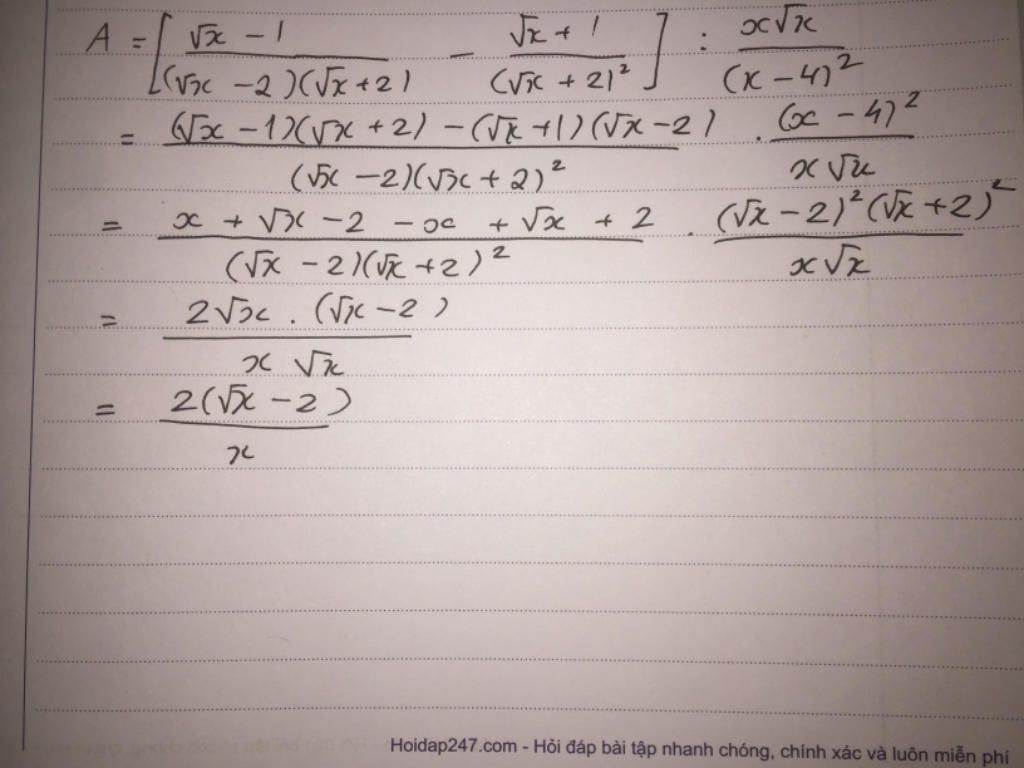 A = [ (√x - 1)/((√x - 2)(√x + 2)) - (√x + 1)/((√x + 2)²) ] : (x√x)/((x - 4)²)
= ((√x - 1)(√x + 2) - (√x + 1)(√x - 2))/((√x - 2)(√x + 2)²) . ((x - 4)²)/(x√x)
= (x + √x - 2 - x + √x + 2)/((√x - 2)(√x + 2)²) . ((√x - 2)²(√x + 2)²)/(x√x)
= (2√x . (√x - 2))/(x √x)
= (2(√x - 2))/x
Hoidap247.com - Hỏi đáp bài tập nhanh chóng, chính xác và luôn miễn phí